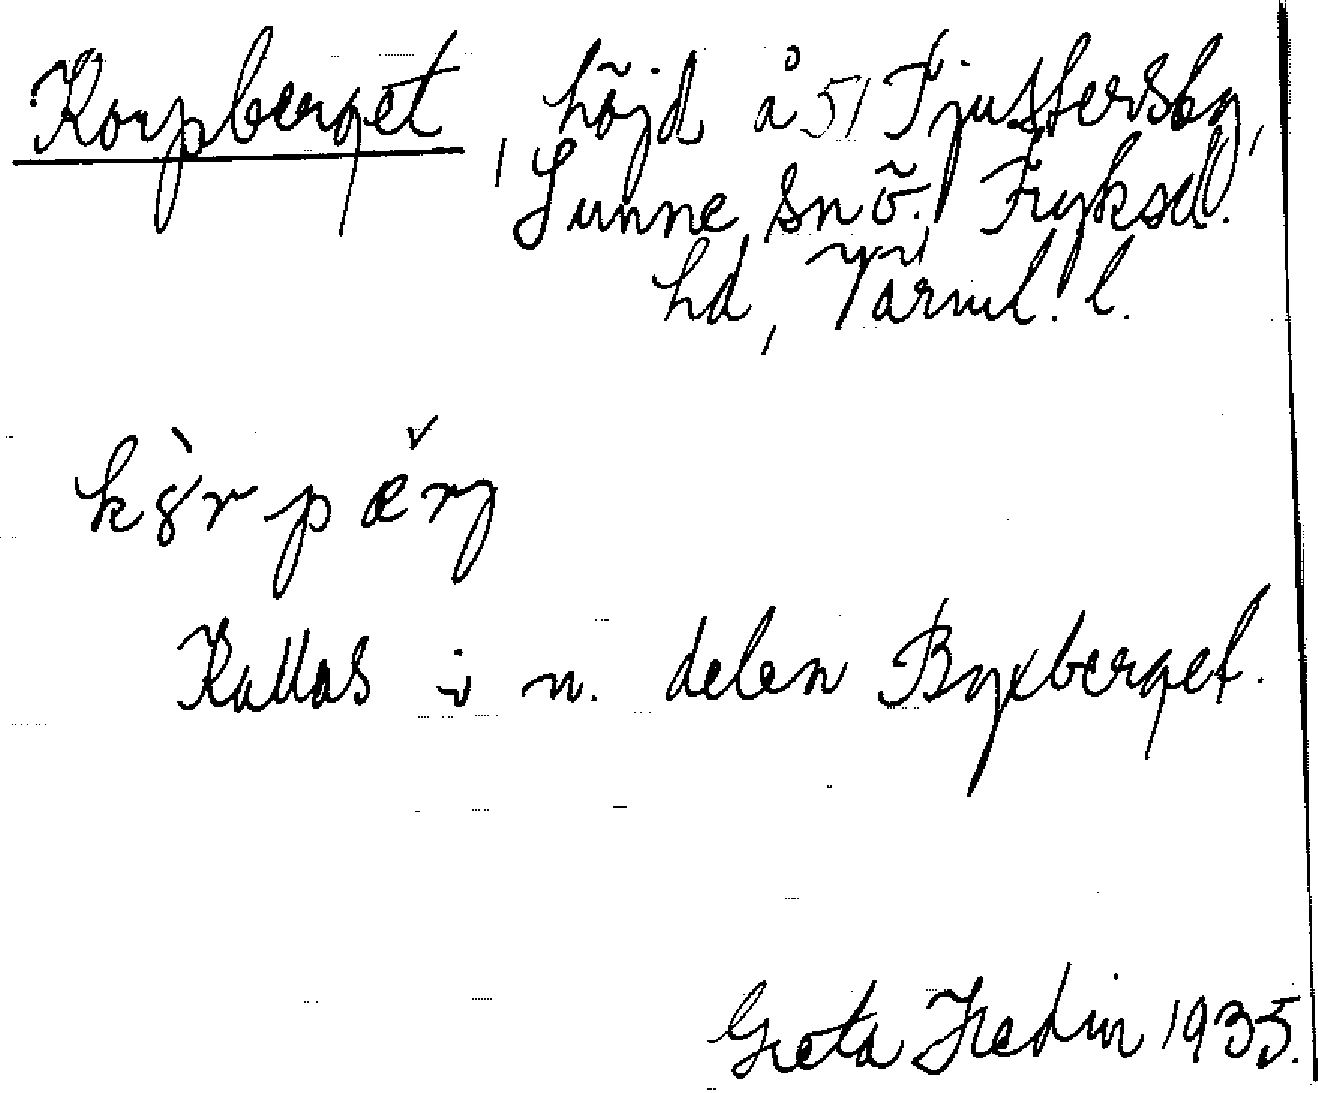 Korpberget, höjd å 51 Tjustersby,
Sunne sn ö. Fryksd.
hd, Värml. l.
kȣ̀rpæ̌rj
Kallas i n. delen Byxberget.
Greta Hedin 1935.